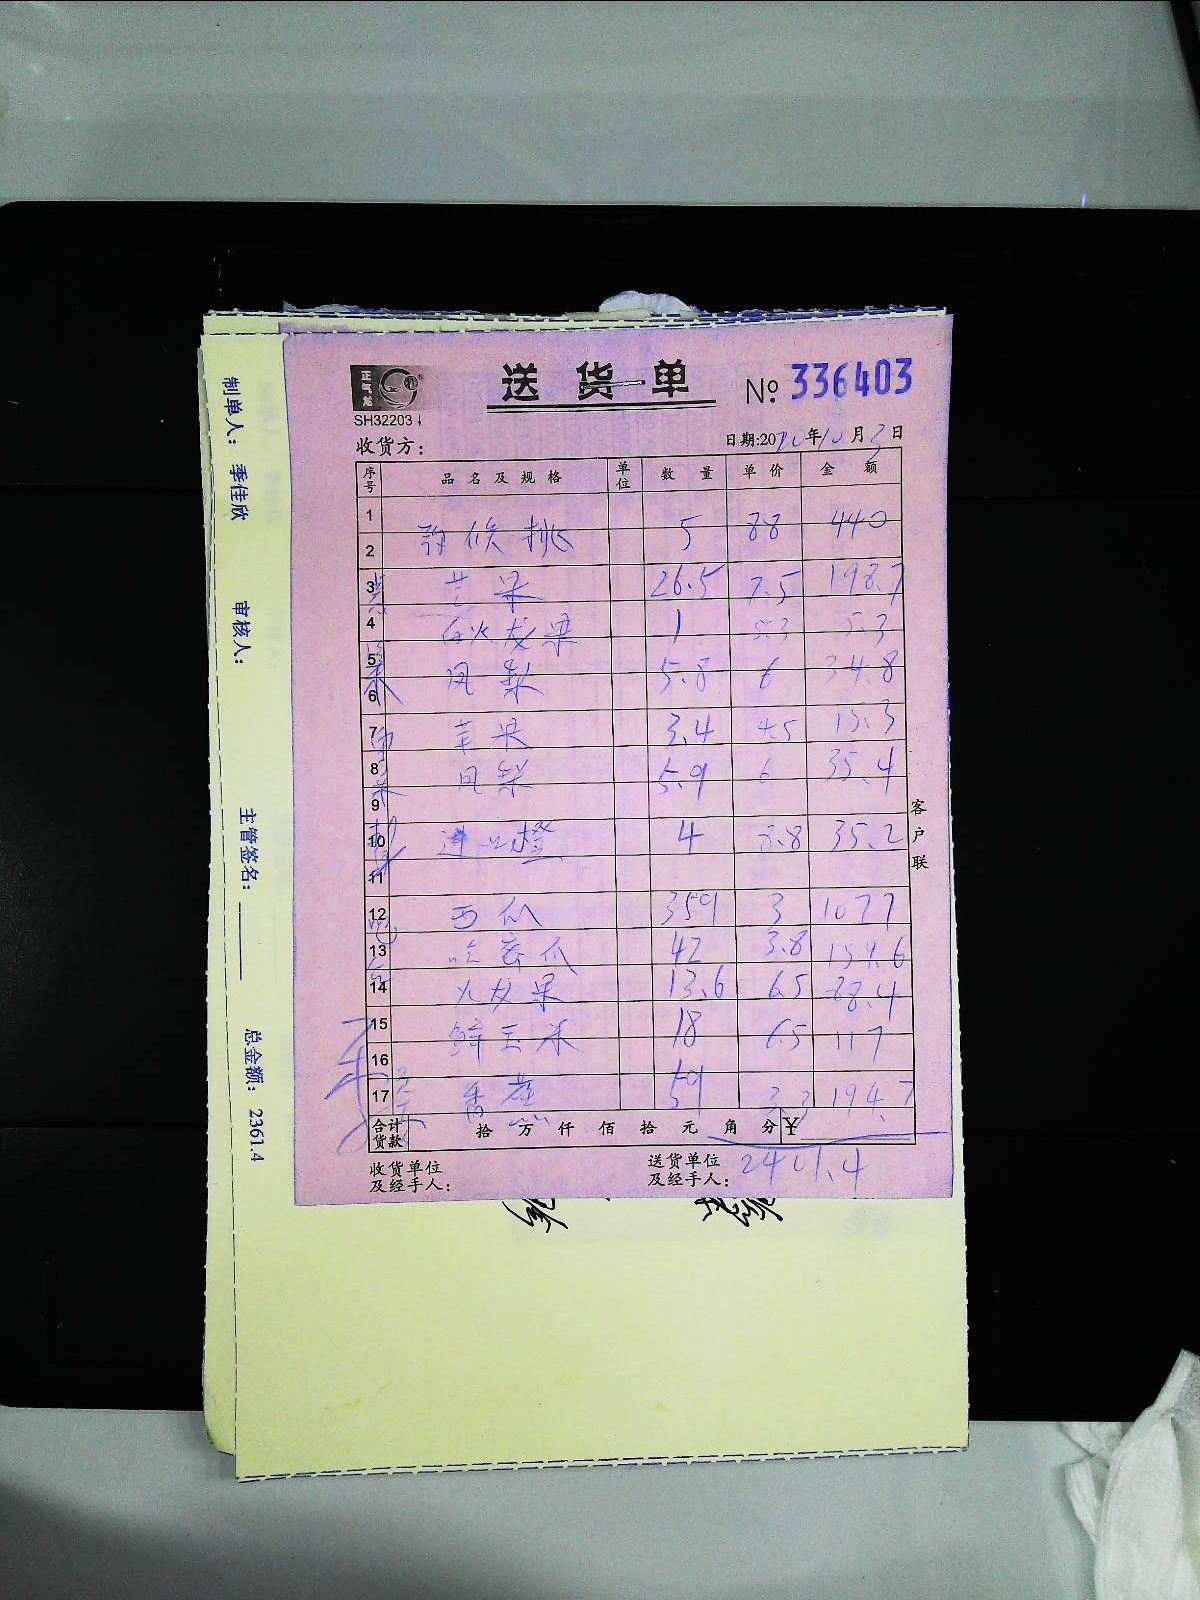 正气龙
SH32203
送货单
№ 336403
收货方：
日期:20 年10月3日
序号 品名及规格 单位 数量 单价 金额
1
2 猕候桃 5 88 440
3 芒果 26.5 7.5 198.7
4 白火龙果 1 5.3 5.3
5
6 凤梨 5.8 6 34.8
7 苹果 3.4 4.5 15.3
8 凤梨 5.9 6 35.4
9
10 进口橙 4 8.8 35.2
11
12 西瓜 359 3 1077
13 哈密瓜 42 3.8 159.6
14 火龙果 13.6 6.5 88.4
15 鲜玉米 18 6.5 117
16
17 香蕉 59 3.3 194.7
合计货款 拾 万 仟 佰 拾 元 角 分 ¥
2401.4
收货单位及经手人：
送货单位及经手人：
客户联
制单人： 季佳欣 审核人： 主管签名： 总金额： 2361.4